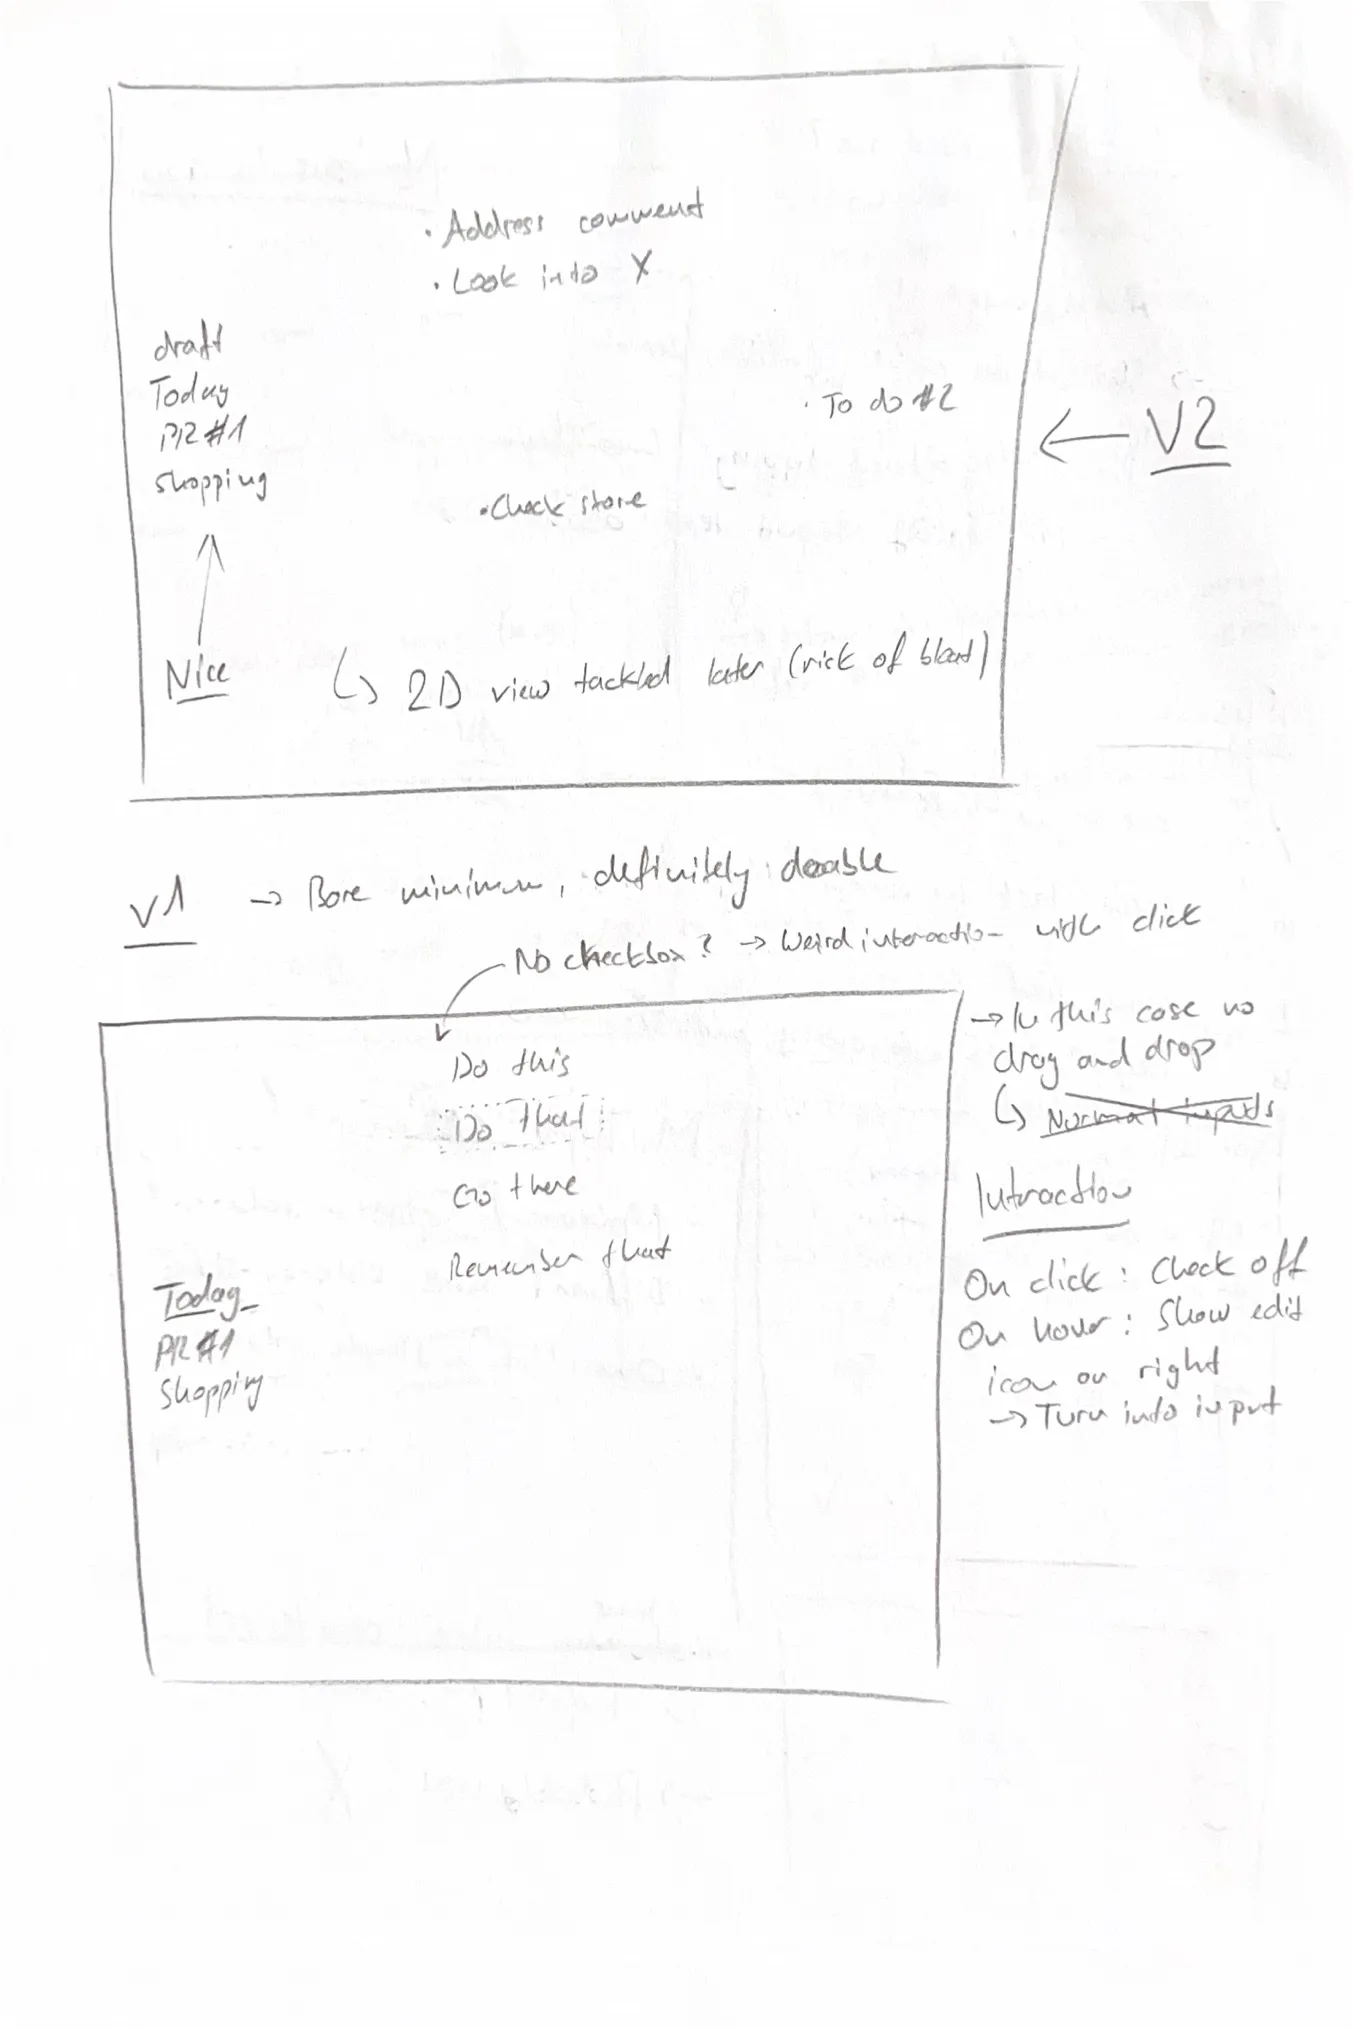 · Address comment
· Look into X
draft
Today
PR #1
shopping
· To do #2
← V2
· Check store
Nice
↳ 2D view tackled later (risk of bloat)
V1 → Bare minimum, definitely doable
No checkbox? → Weird interaction with click
Do this
Do that
Go there
Remember that
Today
PR #1
Shopping
→ In this case no
drag and drop
↳ Normal inputs
Interaction
On click : Check off
On hover : Show edit
icon on right
→ Turn into input